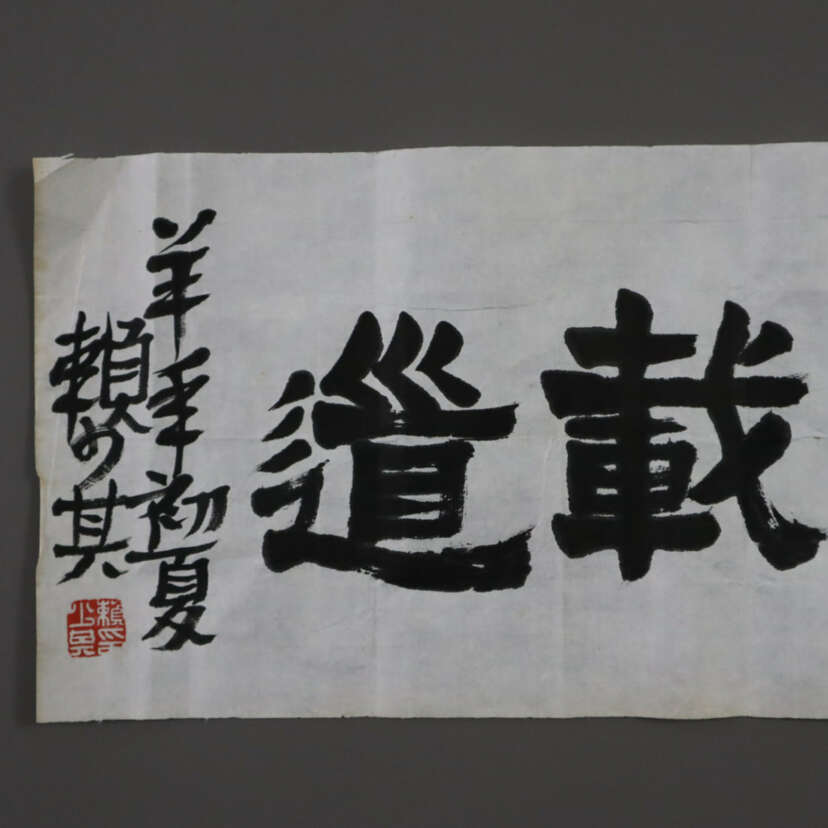 載道
羊年初夏
賴少其
賴少其印